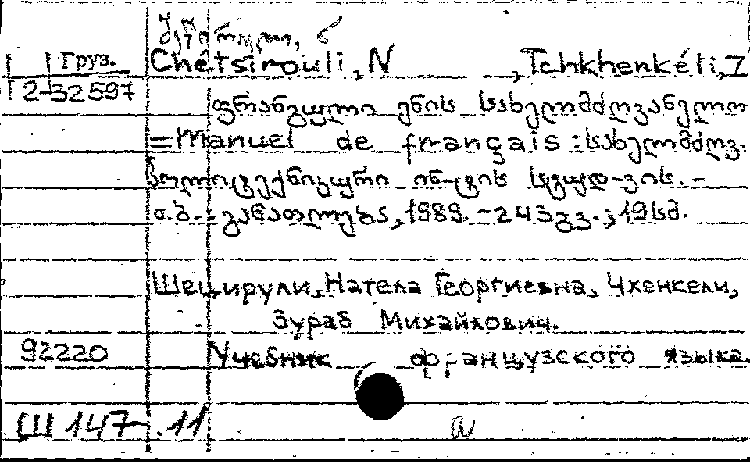 შეწირული, ნ
Груз. Chétsirouli, N , Tchkhenkéli, Z
Г2-32597
ფრანგული ენის სახელმძღვანელო
=Manuel de français : სახელმძღვ.
პოლიტექნიკური ინ-ტის სტუდ-ვის. -
თ.ბ. : განათლება, 1989. - 243 გვ. ; 19 სმ.
Шецирули, Натела Георгиевна, Чхенкели,
Зураб Михайлович.
92220 Учебник французского языка.
Ш 147-11 а